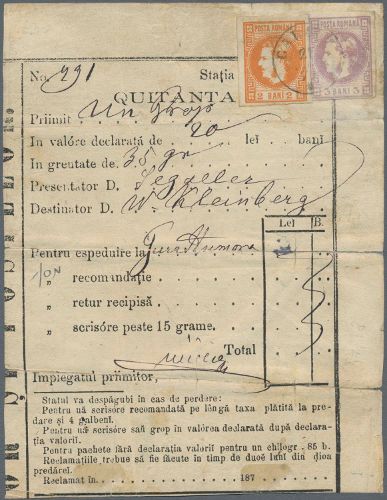 POSTA ROMANA
2 BANI 2
POSTA ROMANA
3 BANI 3
No. 791 Statia
QUITANTA
Priimit un grop
In valóre declarata de 20 lei bani
In greutate de 35 gr
Presentator D. Segzeler
Destinator D. W. Kleinberg
Lei B.
Pentru espeduire la Gura Humora
„ recomandație
„ retur recipisă
„ scrisóre peste 15 grame.
Total
Implegatul priimitor,
Statul va despăgubi în cas de perdere:
Pentru uă scrisóre recomandată pe lóngă taxa plătită la pre-
dare și 4 galbeni.
Pentru uă scrisóre saŭ grop în valórea declarată după declara-
ția valorii.
Pentru pachete fără declarația valorii pentru chilogr. 85 b.
Reclamațiile trebue să fie făcute în timp de duoĕ luni din dioa
predărei.
Reclamat în 187